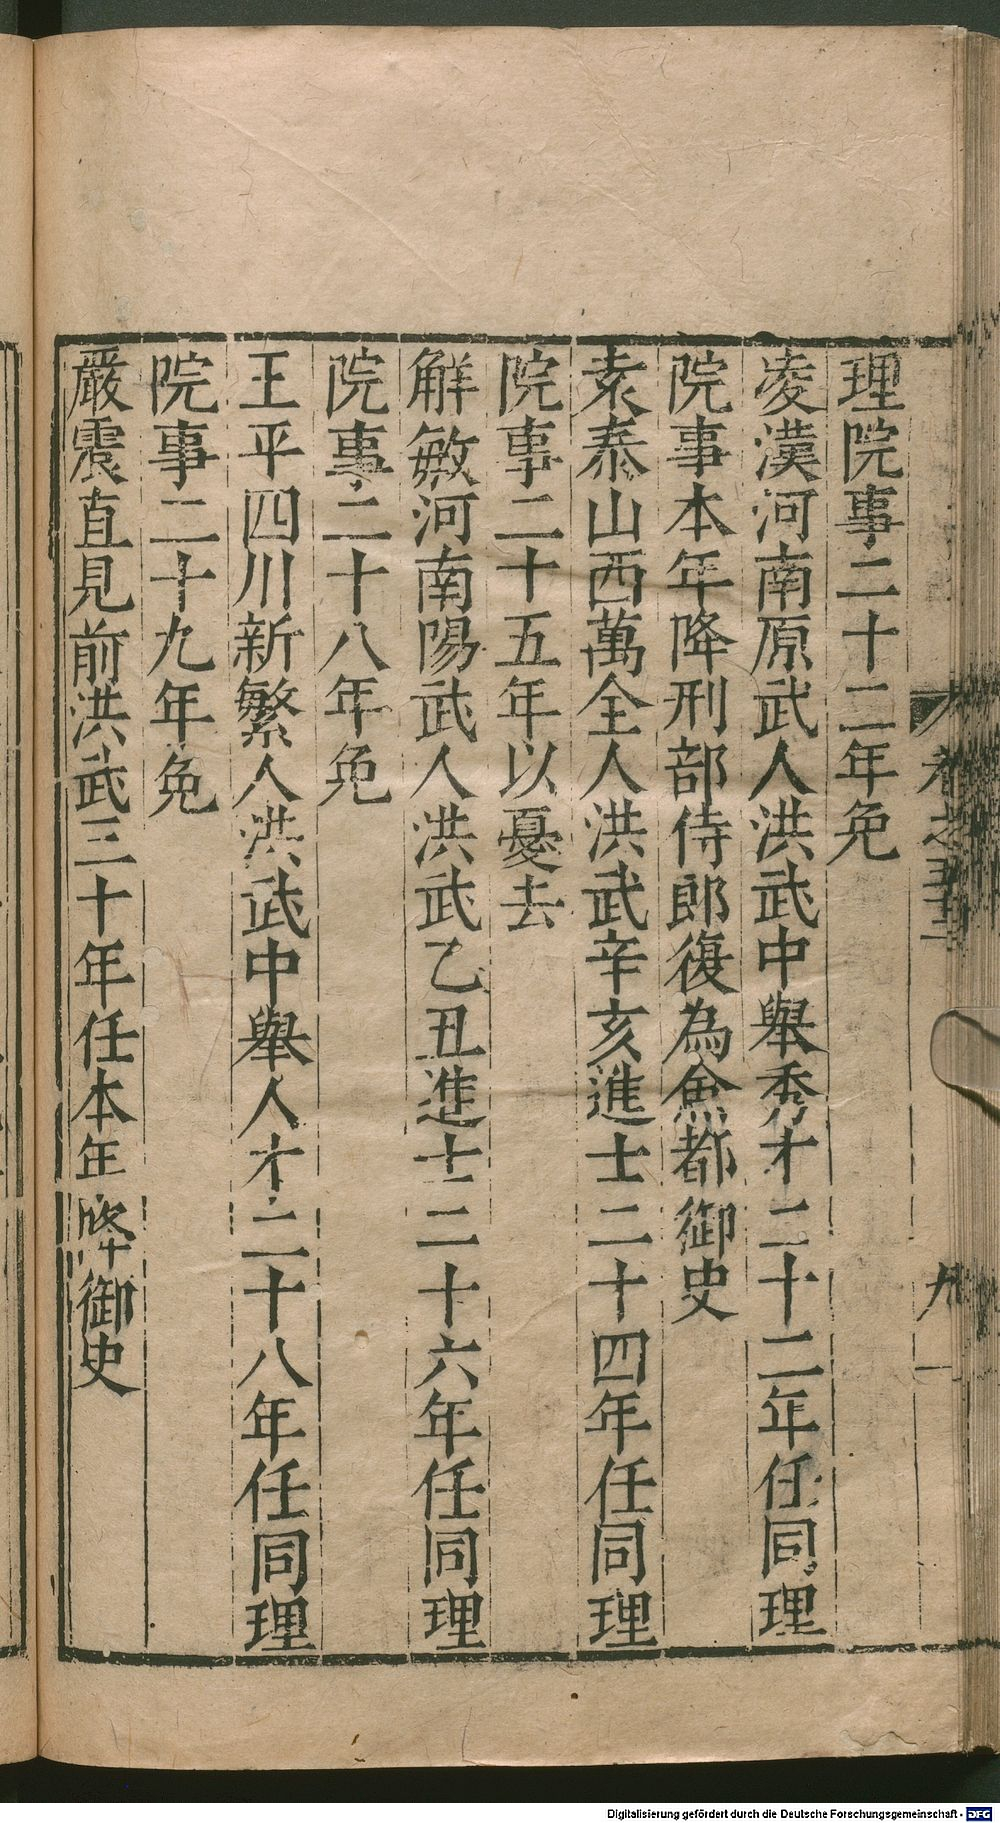 理院事二十二年免
凌漢河南原武人洪武中舉秀才二十二年任同理
院事本年降刑部侍郎復為僉都御史
袁泰山西萬全人洪武辛亥進士二十四年任同理
院事二十五年以憂去
解敏河南陽武人洪武乙丑進士二十六年任同理
院事二十八年免
王平四川新繁人洪武中舉人才二十八年任同理
院事二十九年免
嚴震直見前洪武三十年任本年降御史
卷之五十三
九
Digitalisierung gefördert durch die Deutsche Forschungsgemeinschaft - DFG